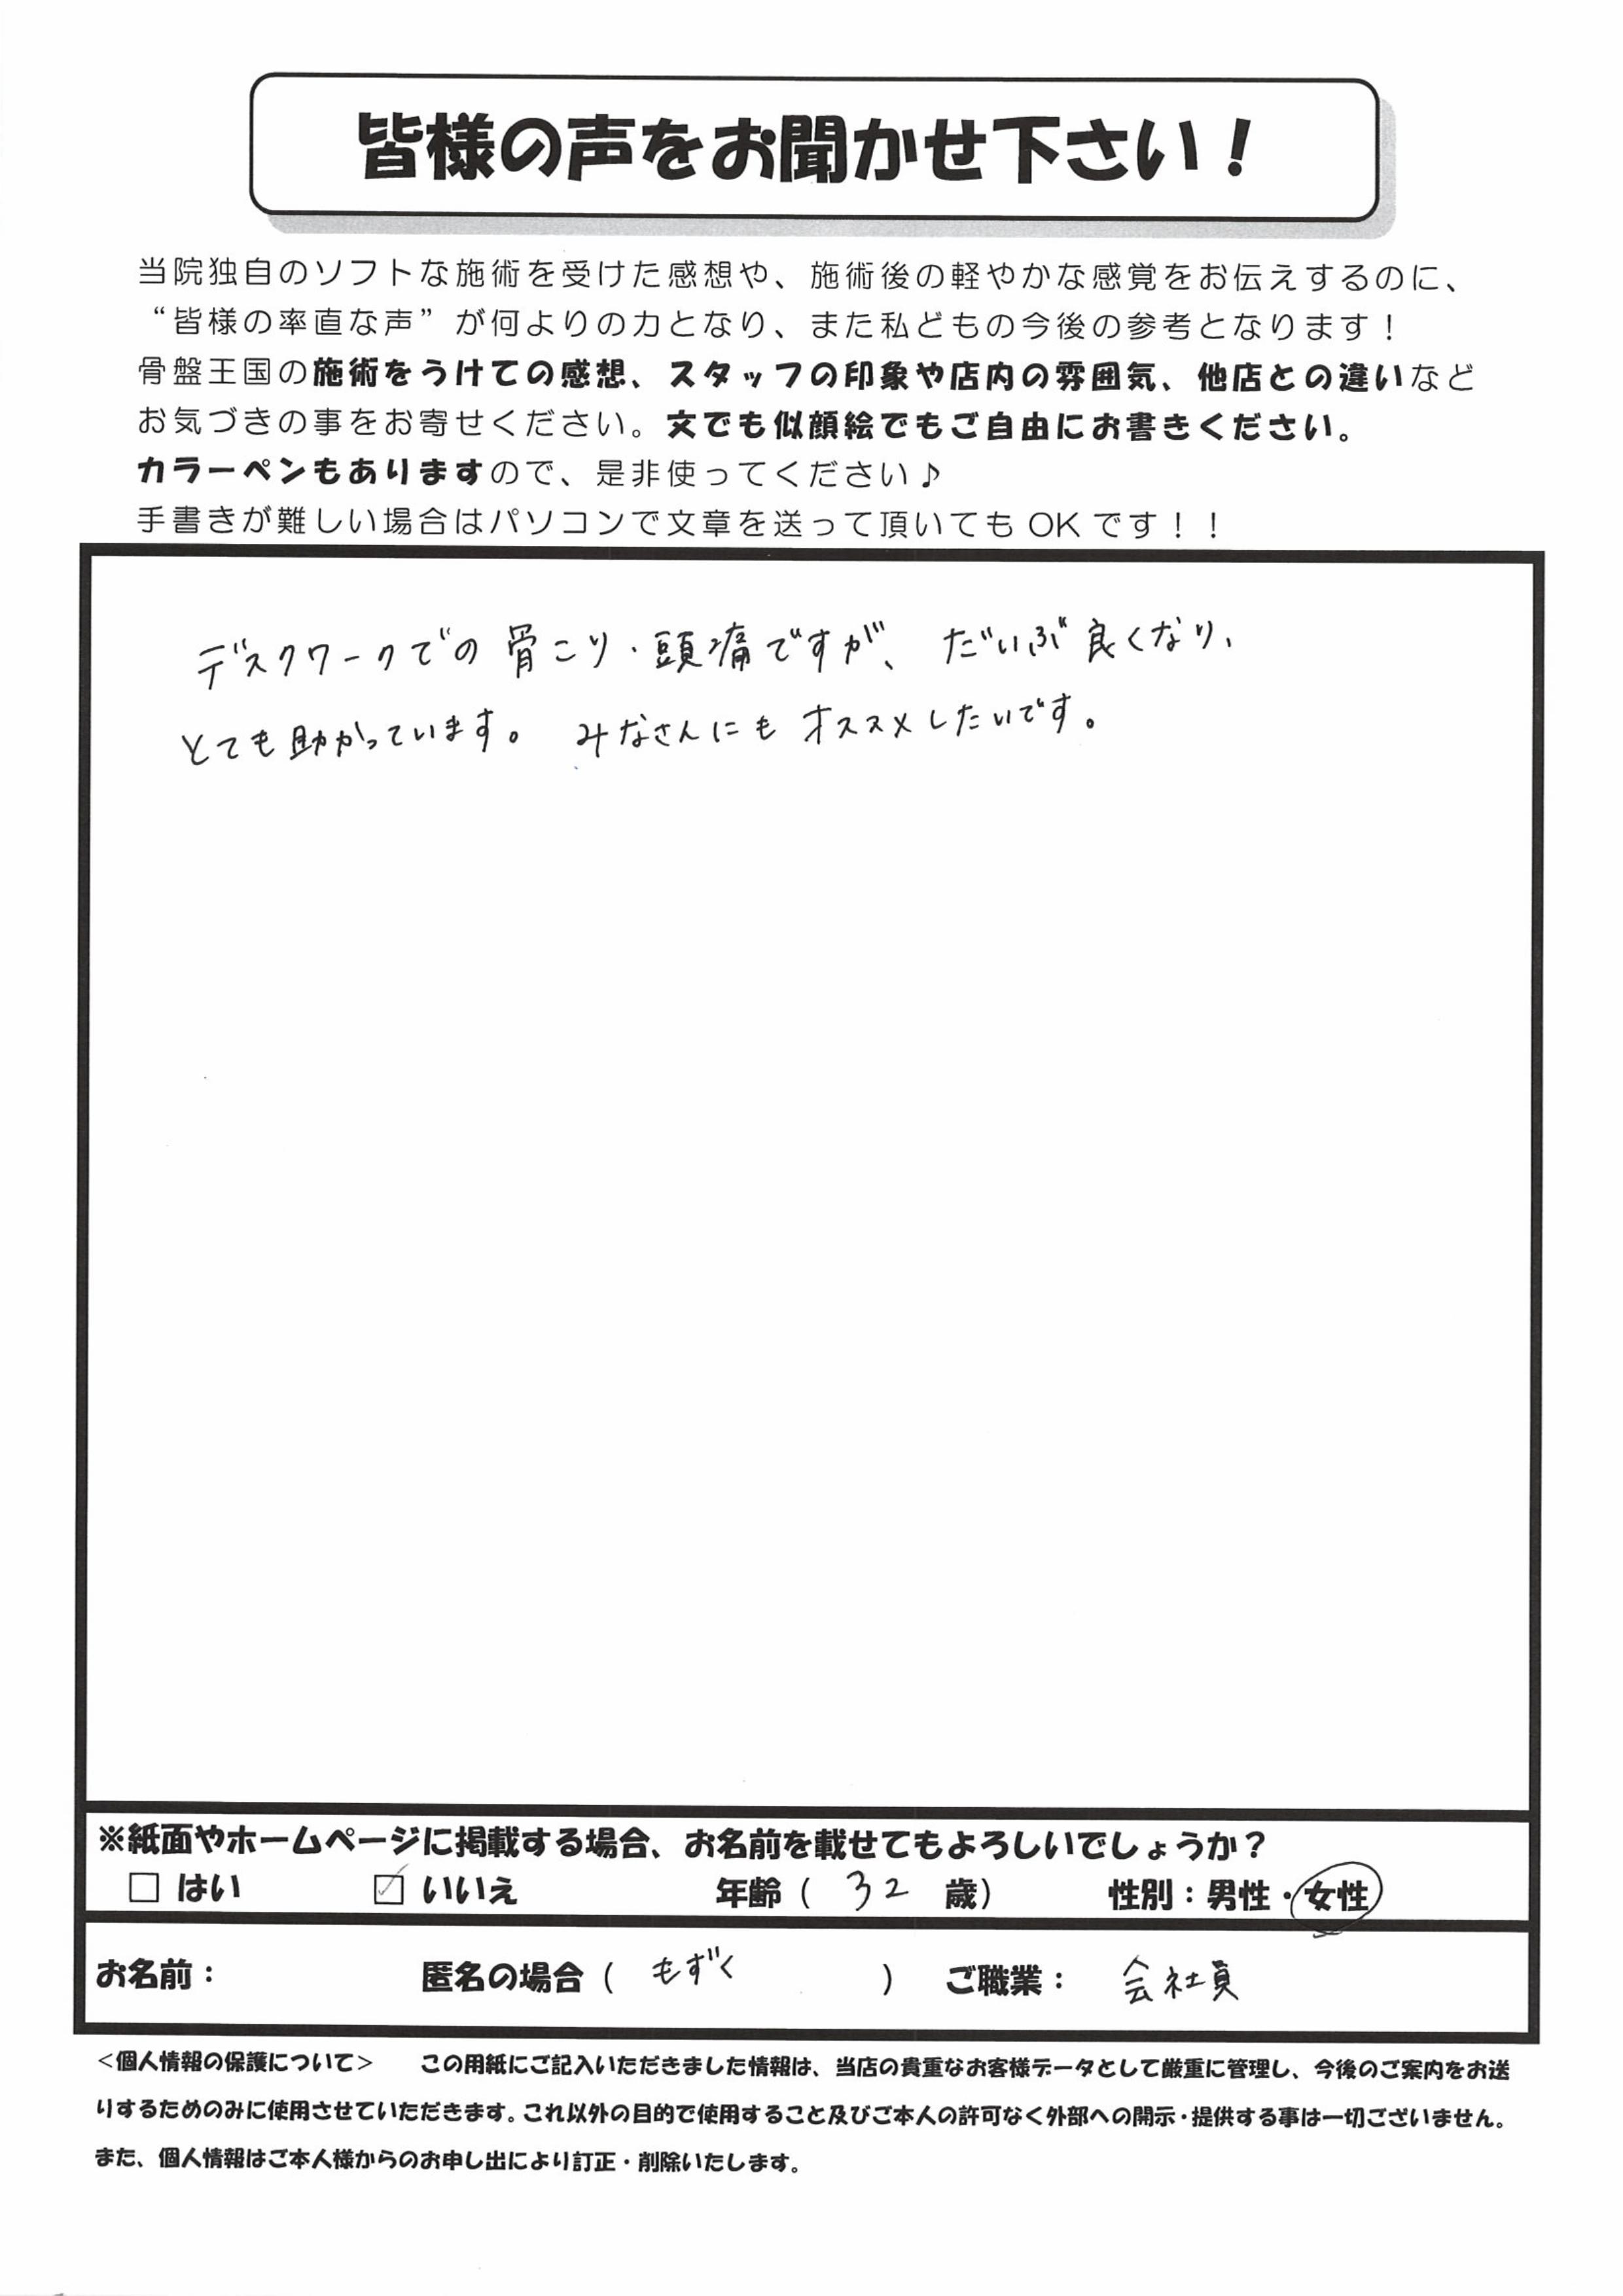 皆様の声をお聞かせ下さい！
当院独自のソフトな施術を受けた感想や、施術後の軽やかな感覚をお伝えするのに、
“皆様の率直な声”が何よりの力となり、また私どもの今後の参考となります！
骨盤王国の施術をうけての感想、スタッフの印象や店内の雰囲気、他店との違いなど
お気づきの事をお寄せください。文でも似顔絵でもご自由にお書きください。
カラーペンもありますので、是非使ってください♪
手書きが難しい場合はパソコンで文章を送って頂いてもOKです！！
デスクワークでの骨こり・頭痛ですが、だいぶ良くなり、
とても助かっています。みなさんにもオススメしたいです。
※紙面やホームページに掲載する場合、お名前を載せてもよろしいでしょうか？
□ はい ☑ いいえ 年齢（ 32 歳） 性別：男性・女性
お名前： 匿名の場合（ もずく ） ご職業： 会社員
＜個人情報の保護について＞ この用紙にご記入いただきました情報は、当店の貴重なお客様データとして厳重に管理し、今後のご案内をお送
りするためのみに使用させていただきます。これ以外の目的で使用すること及びご本人の許可なく外部への開示・提供する事は一切ございません。
また、個人情報はご本人様からのお申し出により訂正・削除いたします。